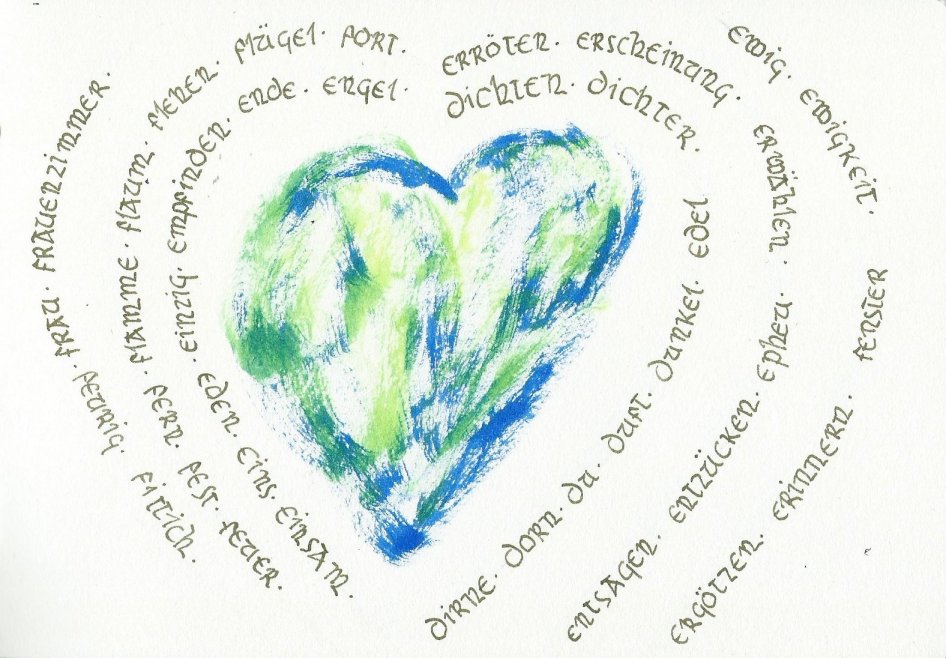 dichten · dichter.
dirne. dorn. du. duft. dunkel. edel
eden. eins. einsam.
einzig. empfinden. ende. engel.
entsagen. entzücken. epheu. erwählen.
ergötzen. erinnern.
erröten. erscheinung.
ewig. ewigkeit.
fenster
fern. fest. feuer.
flamme. flaum. flehen. flügel. fort.
feurig. fittich.
frau. frauenzimmer.